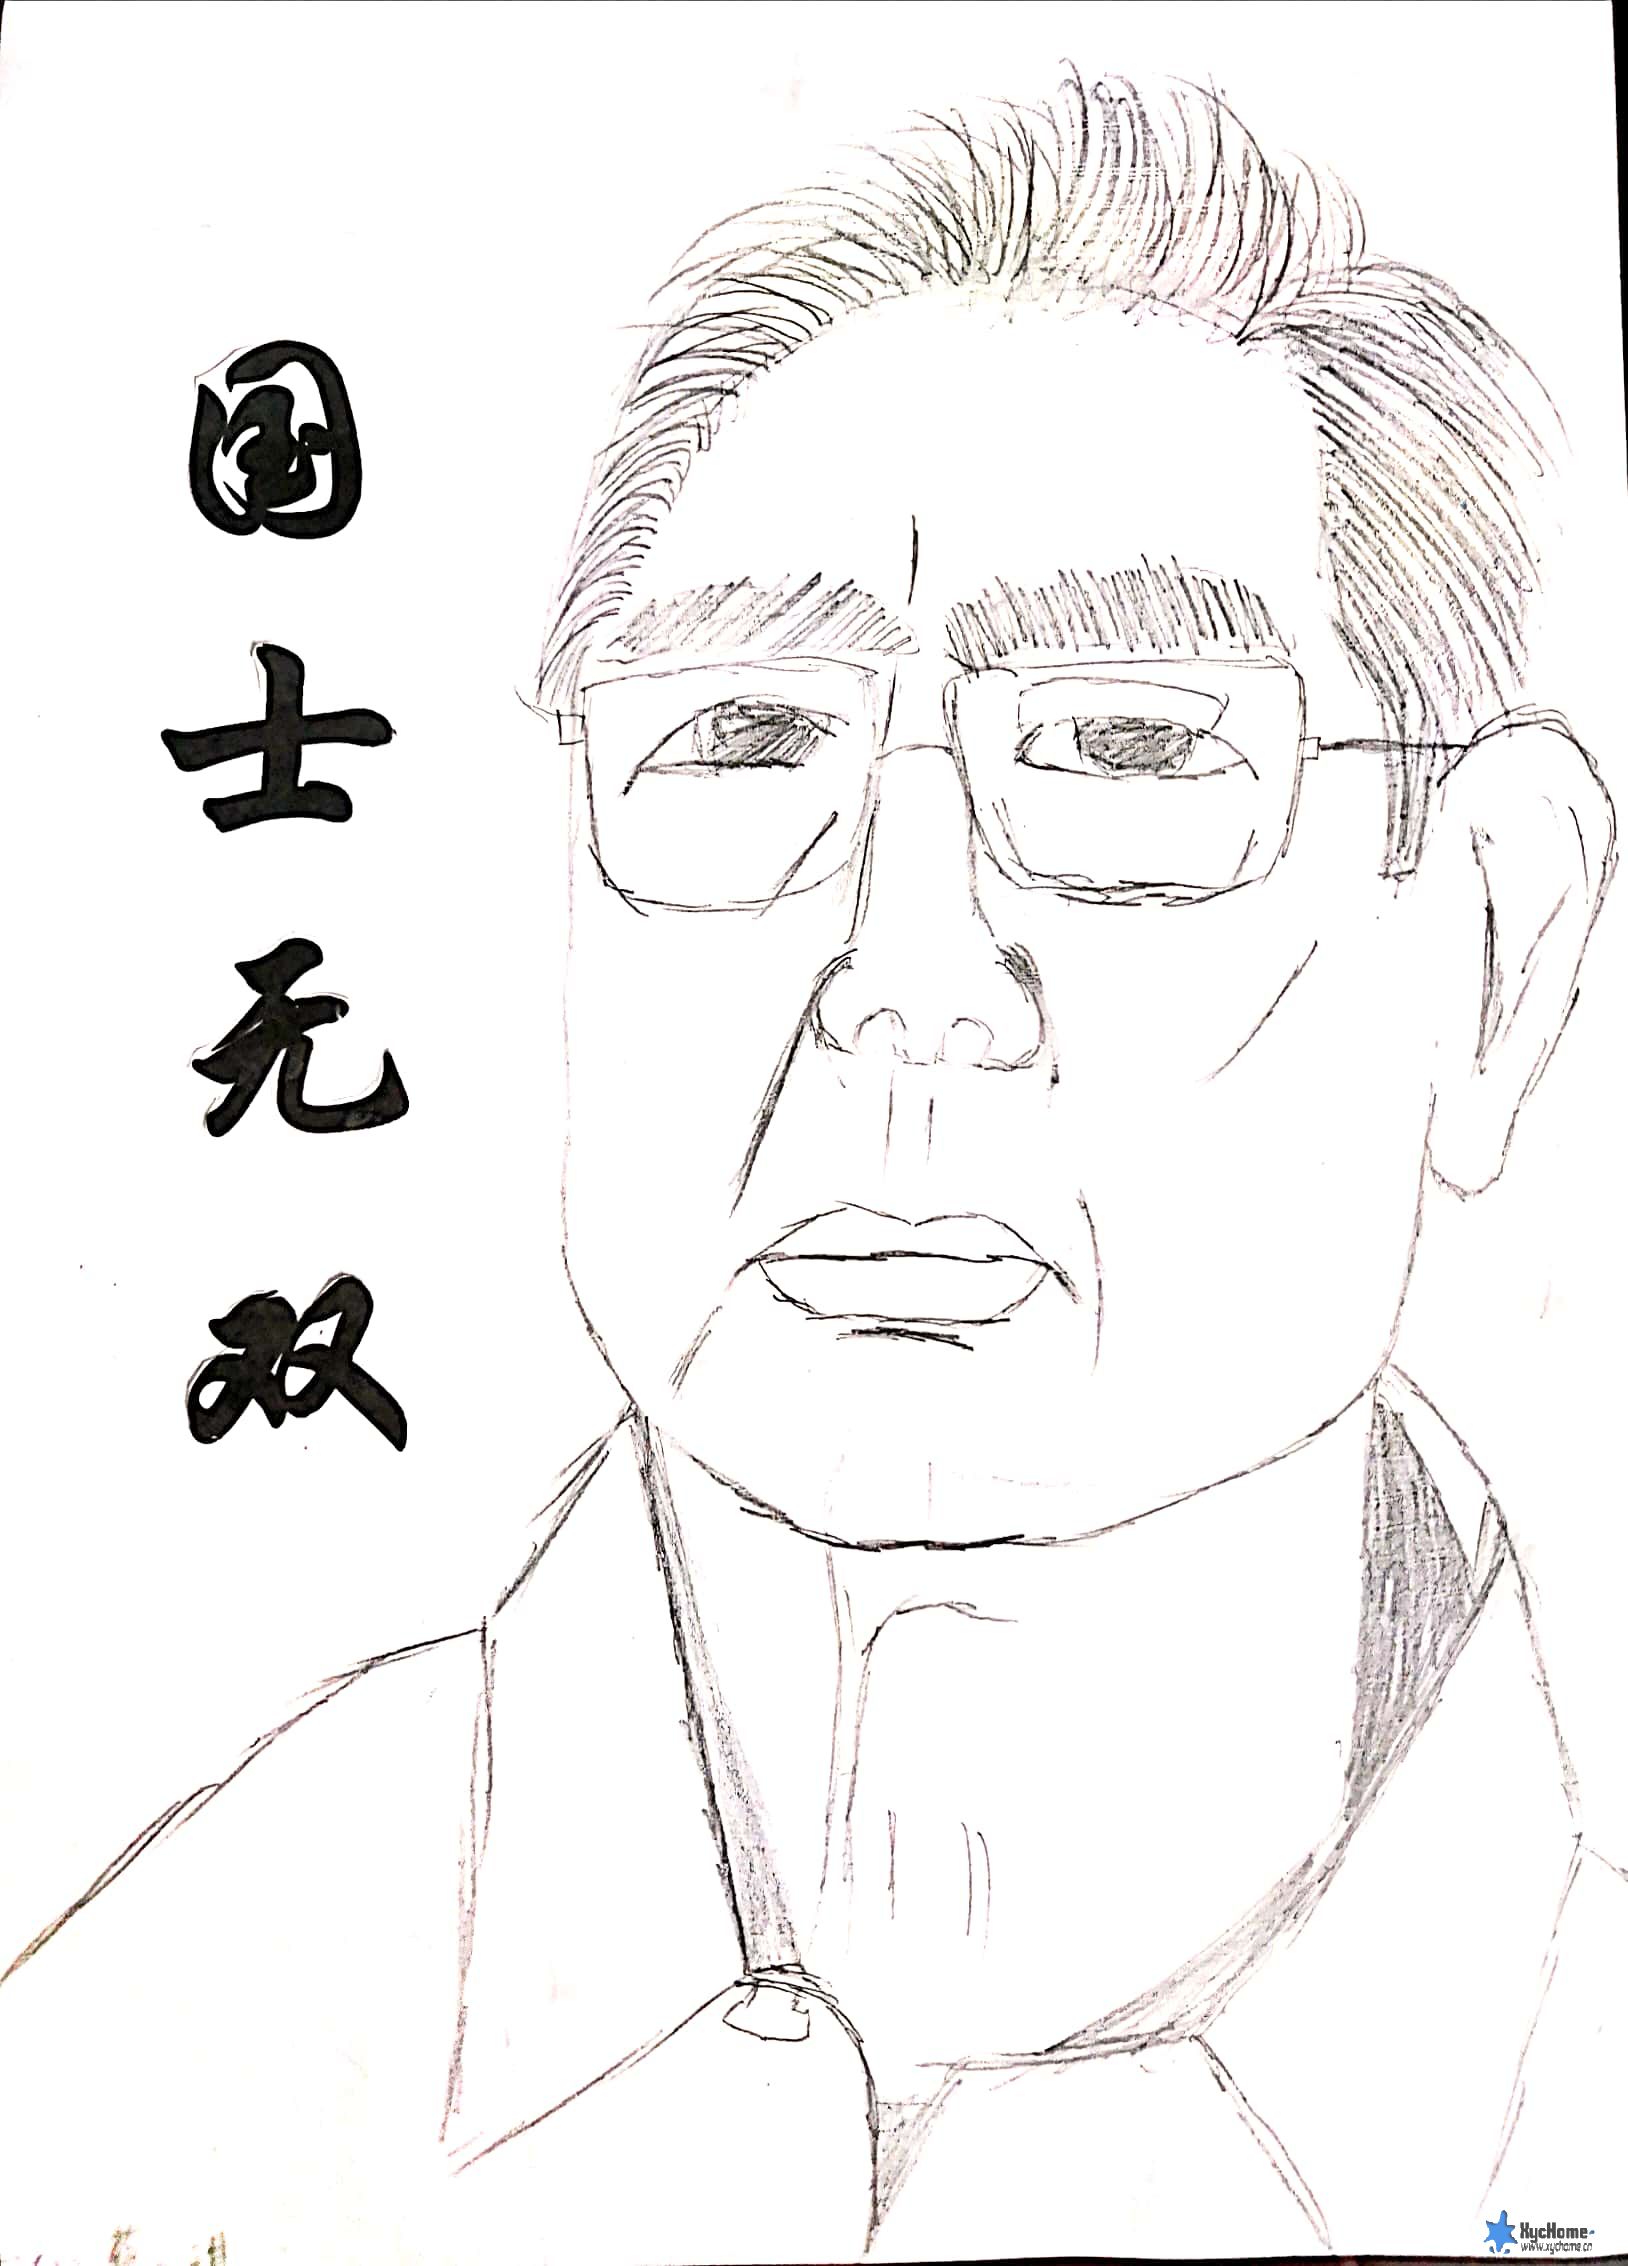 国士无双
XycHome
www.xychome.cn